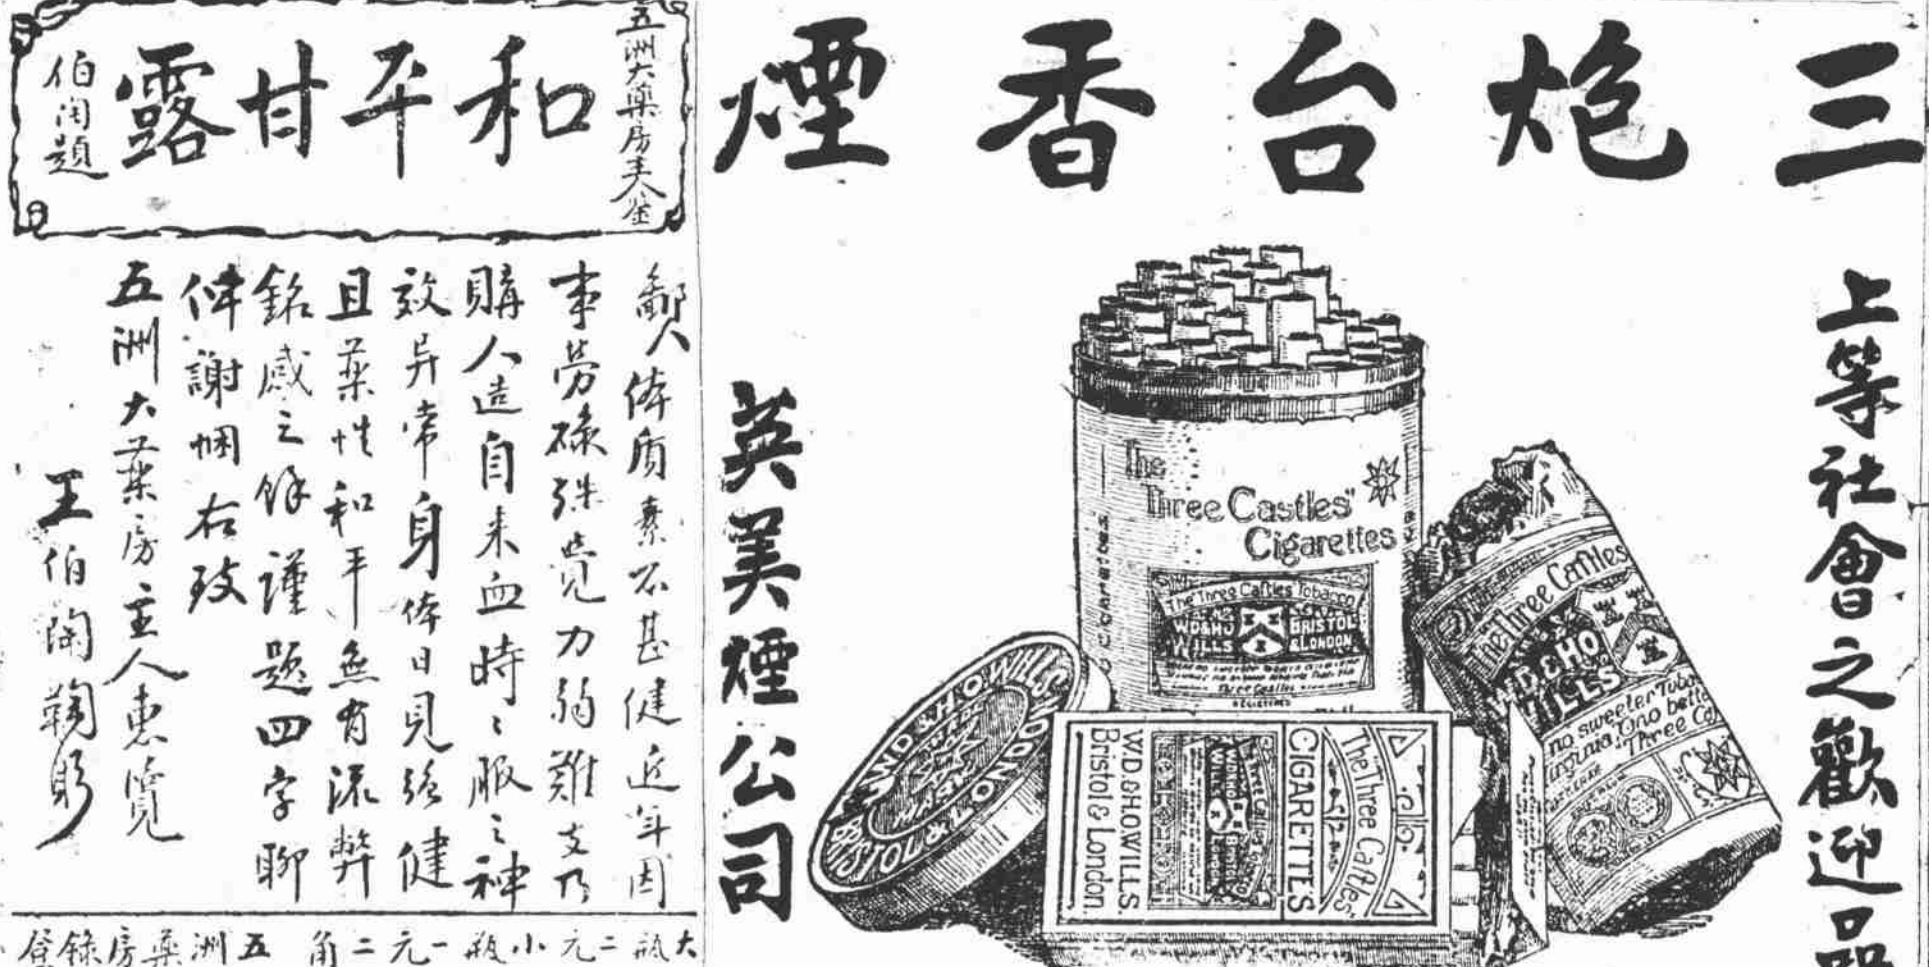 三炮台香煙
上等社會之歡迎品
英美煙公司
The
Three Castles"
Cigarettes
The Three Castles Tobacco
WD&HO
WILLS
BRISTOL
& LONDON
Three Castles
REGISTERED
W.D.&H.O.WILLS
BRISTOL & LONDON
The "Three Castles"
CIGARETTES
W.D.&H.O.WILLS.
Bristol & London.
The Three Castles
WD&HO
WILLS
no sweeter Toba
Virginia
no bette
Three Ca
五洲大藥房主人鉴
和平甘露
伯陶題
鄙人体质素不甚健近年因
事劳碌殊觉力弱難支乃
購人造自来血時時服之神
效异常身体日見强健
且药性和平無有流弊
銘感之餘謹题四字聊
伸謝悃右致
五洲大药房主人惠覽
王伯陶鞠躬
大瓶二元小瓶一元二角
五洲藥房錄登